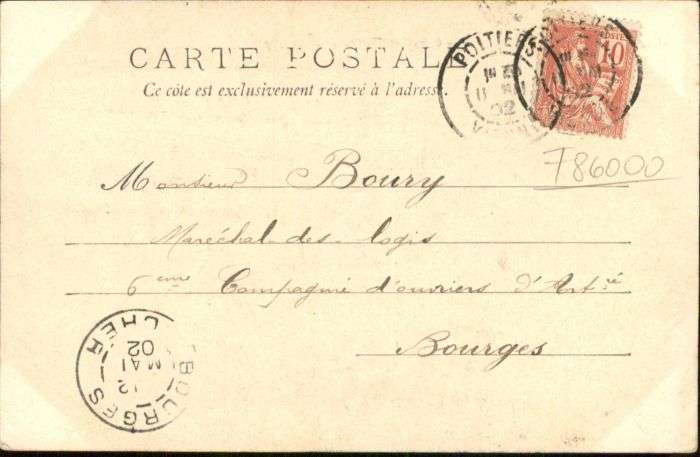 CARTE POSTALE
Ce côte est exclusivement réservé à l'adresse.
POITIERS
02
POSTES
10
786000
Monsieur Boury
Maréchal-des-logis
6eme Compagnie d'ouvriers d'Artré
Bourges
BOURGES
12
MAI
02
CHER